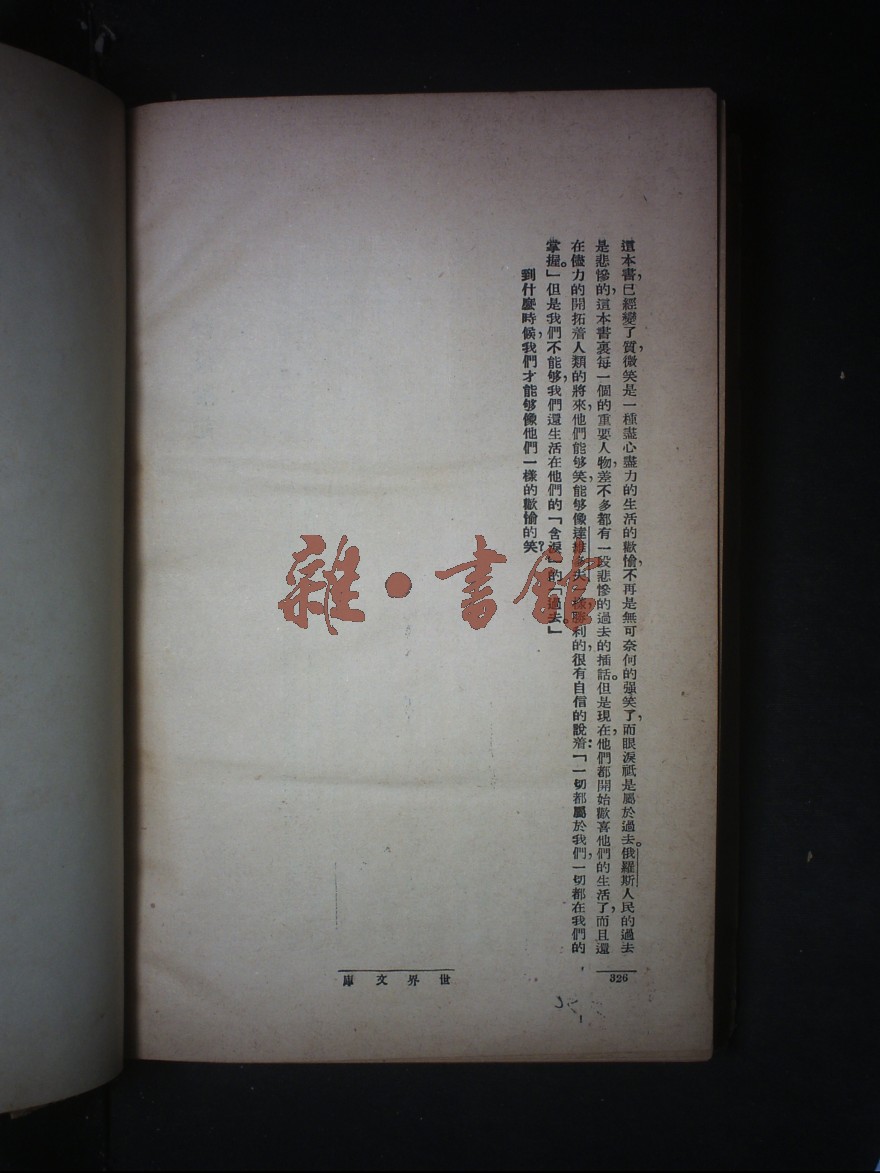 這本書，已經變了質，微笑是一種盡心盡力的生活的歡愉，不再是無可奈何的强笑了，而眼淚祗是屬於過去。俄羅斯人民的過去
是悲慘的，這本書裏每一個的重要人物，差不多都有一段悲慘的過去的插話。但是現在，他們都開始歡喜他們的生活了，而且還
在儘力的開拓着人類的將來，他們能够笑，能够像達維多夫一樣，勝利的，很有自信的說着：「一切都屬於我們，一切都在我們的
掌握。」但是我們不能够，我們還生活在他們的「含淚」的「過去」。
到什麼時候，我們才能够像他們一樣的歡愉的笑？
世界文庫
326
雜·書館